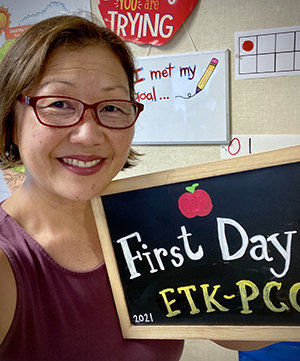 YOU are
TRYING
I met my
goal...
01
First Day
ETK-PCC
2021